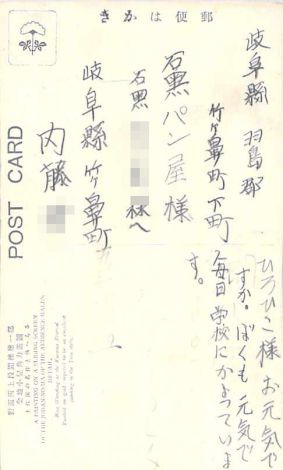 きかは便郵
岐阜縣 羽島郡
竹ヶ鼻町 下町
石黒パン屋様
石黒 様へ
岐阜縣 竹ヶ鼻町
内藤
ひろひこ様 お元気で
すか。ぼくも元気で
毎日 学校にかよっていま
す。
POST CARD
A PAINTING ON A SLIDING SCREEN